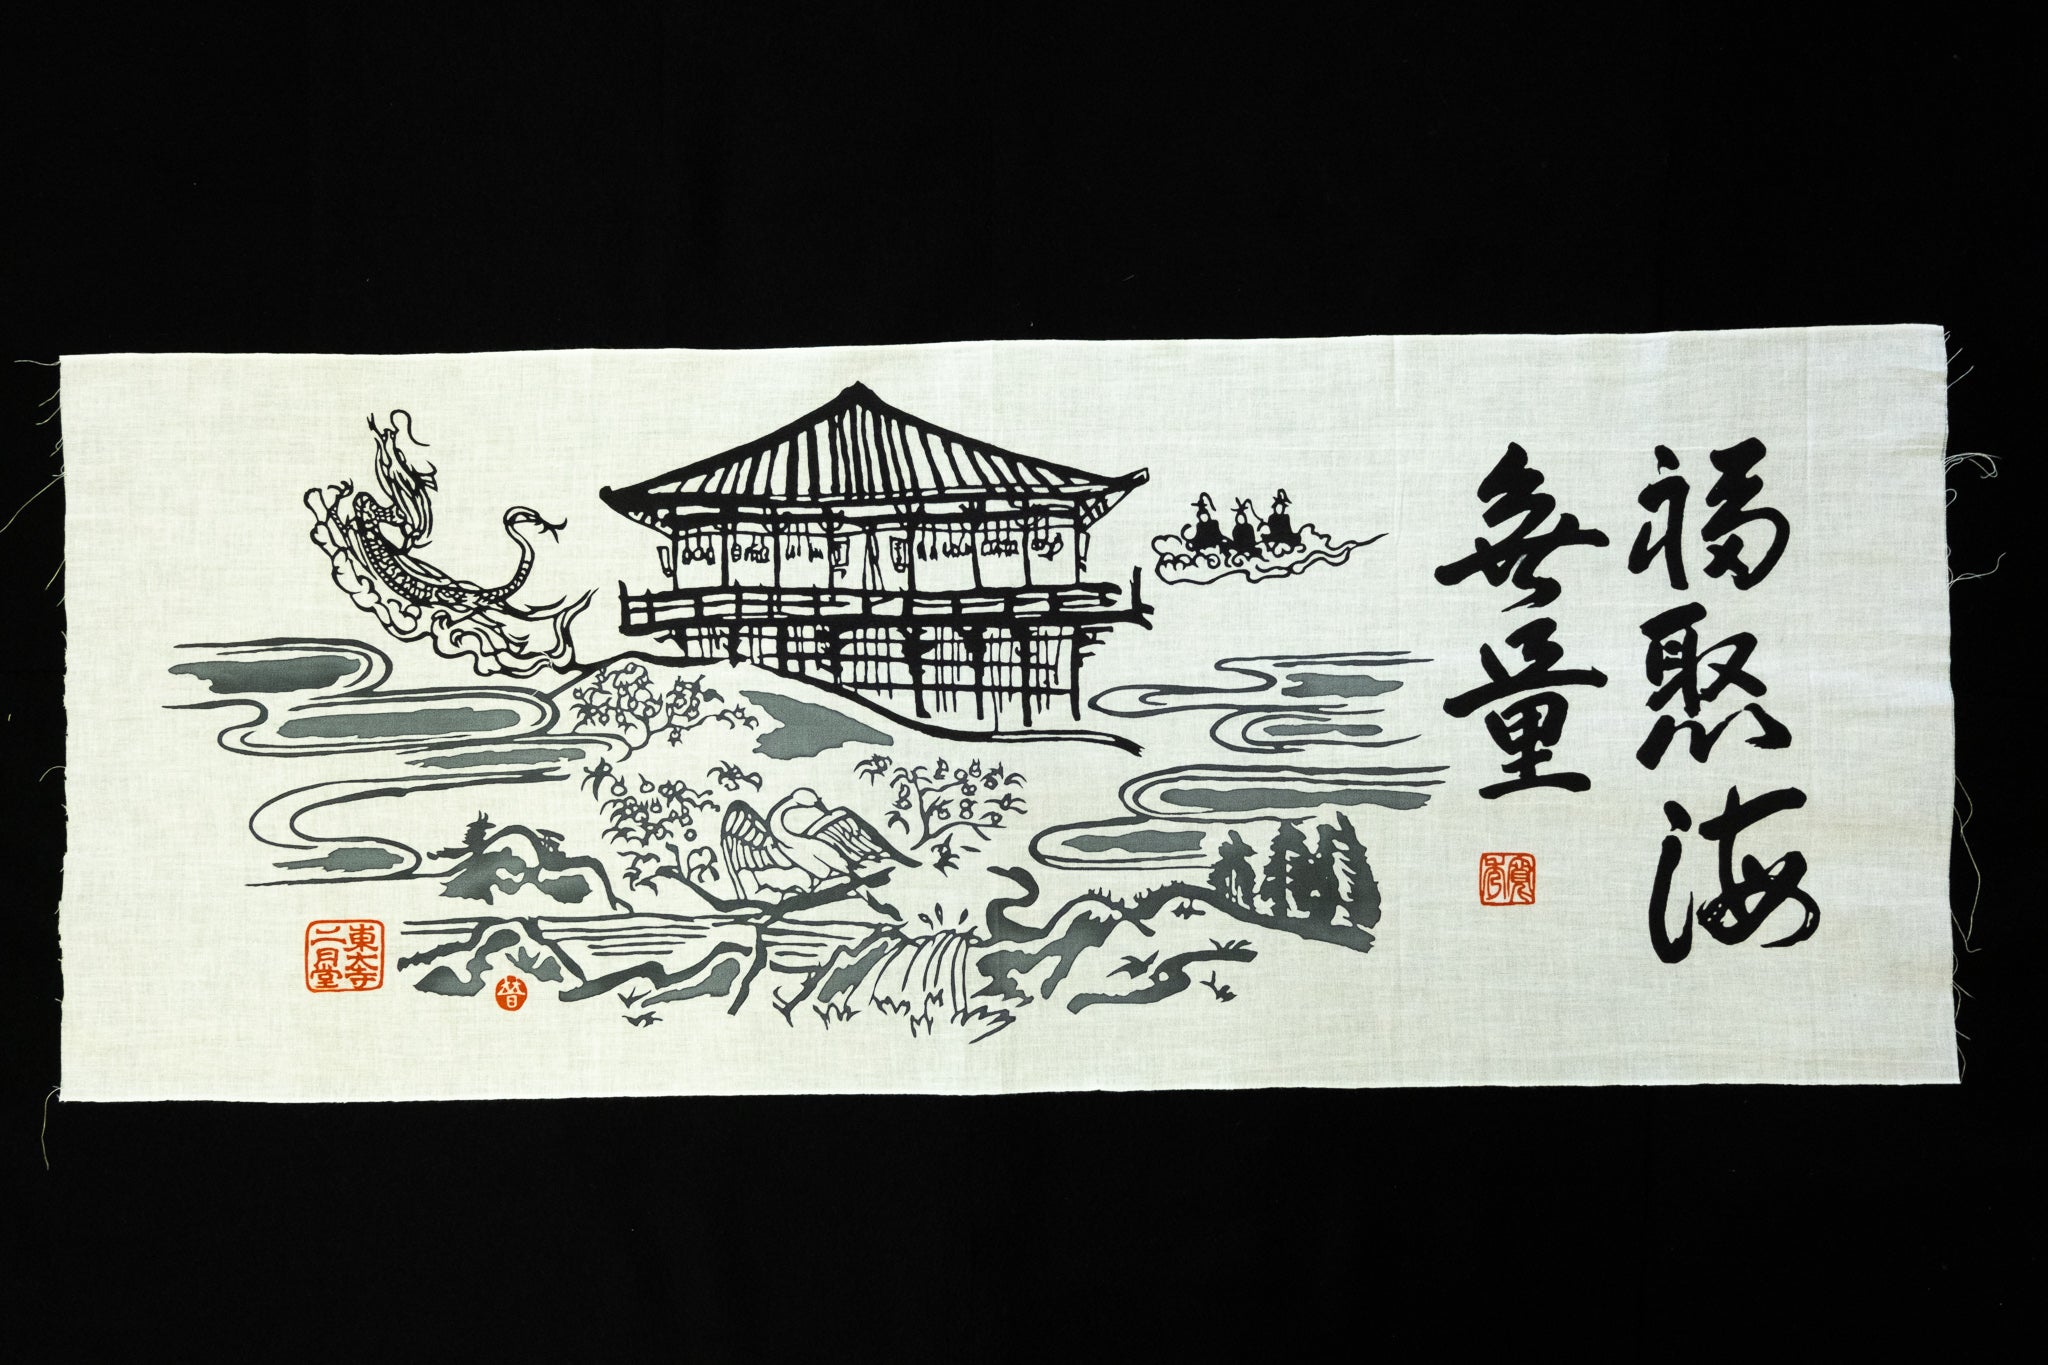 福聚海
無量
東大寺
二月堂
晋